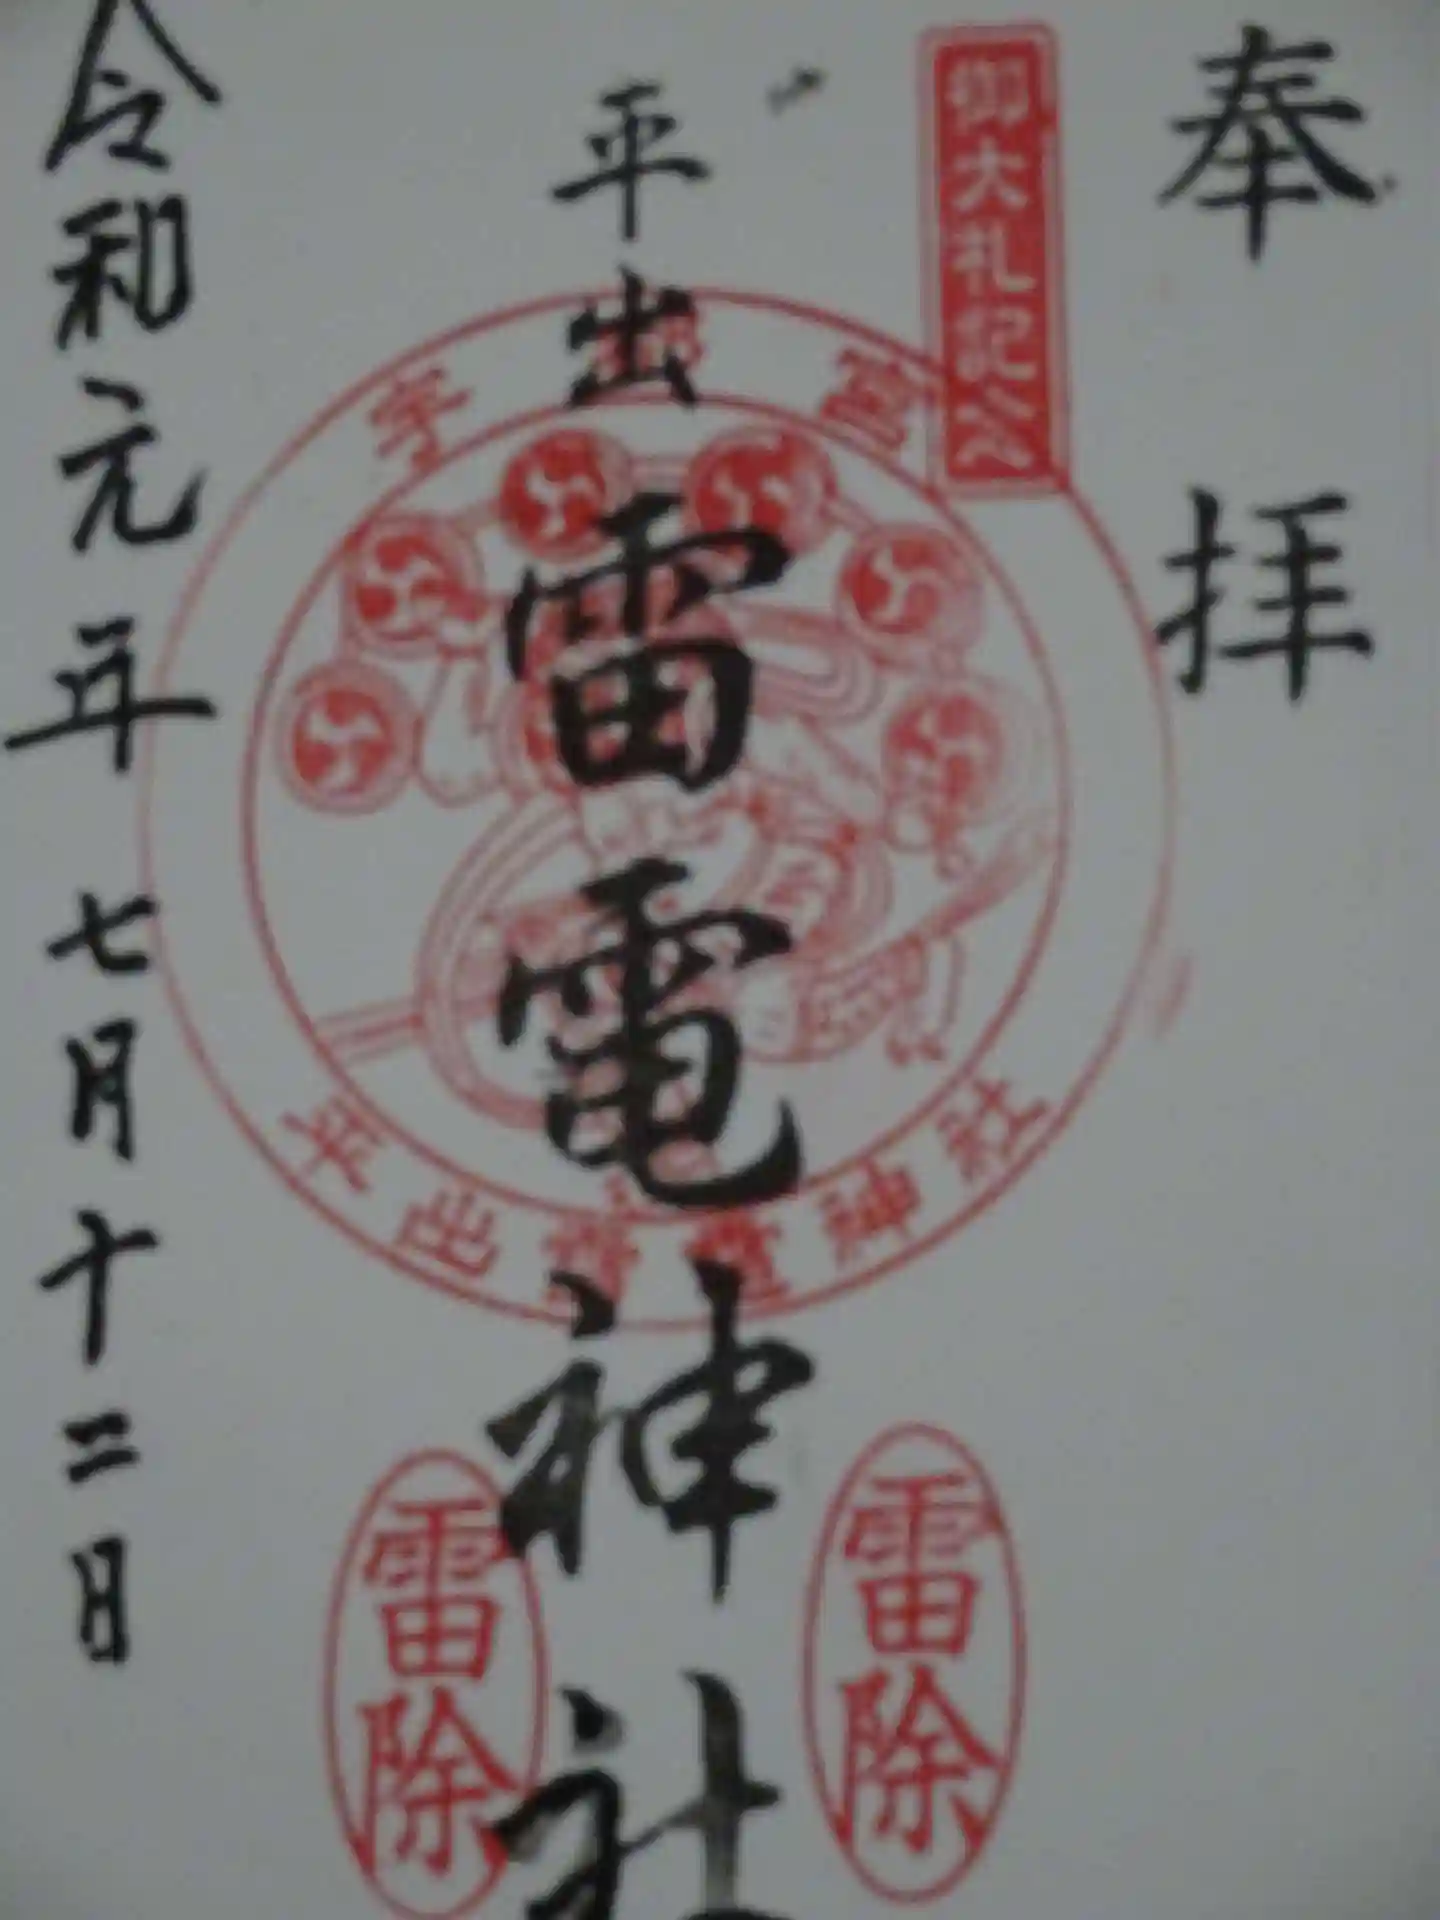 奉拝
御大礼記念
平出雷電神社
宇都宮
平出雷電神社
雷除
雷除
令和元年七月十二日